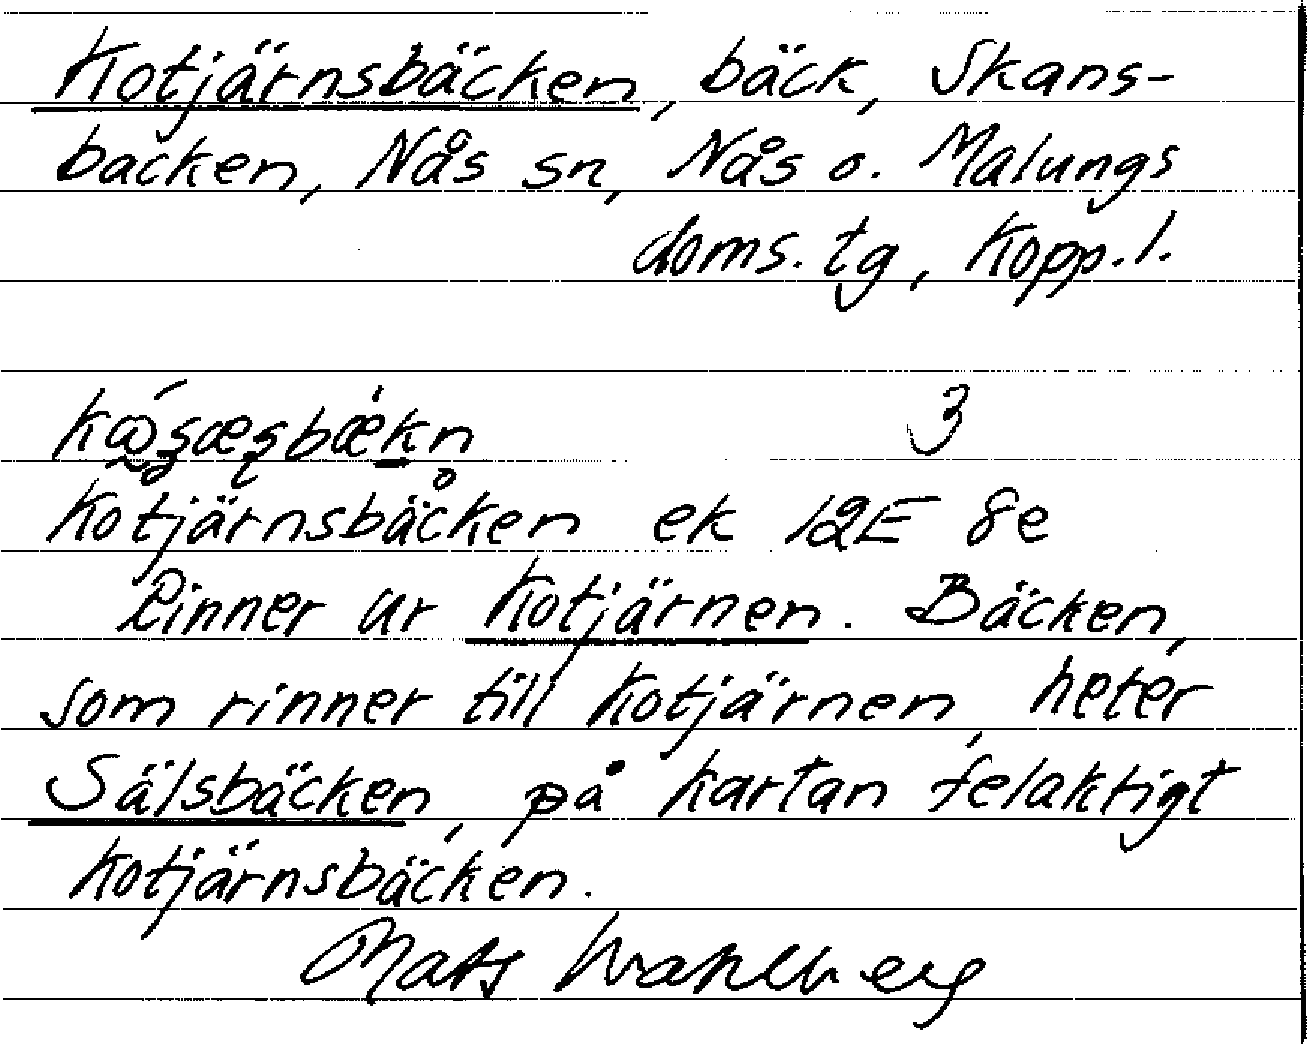 Kotjärnsbäcken, bäck, Skans-
backen, Nås sn, Nås o. Malungs
doms. tg, Kopp. l.
3
Kotjärnsbäcken ek 12E 8e
Rinner ur Kotjärnen. Bäcken,
som rinner till Kotjärnen, heter
Sälsbäcken, på kartan felaktigt
Kotjärnsbäcken.
Mats Wahlberg